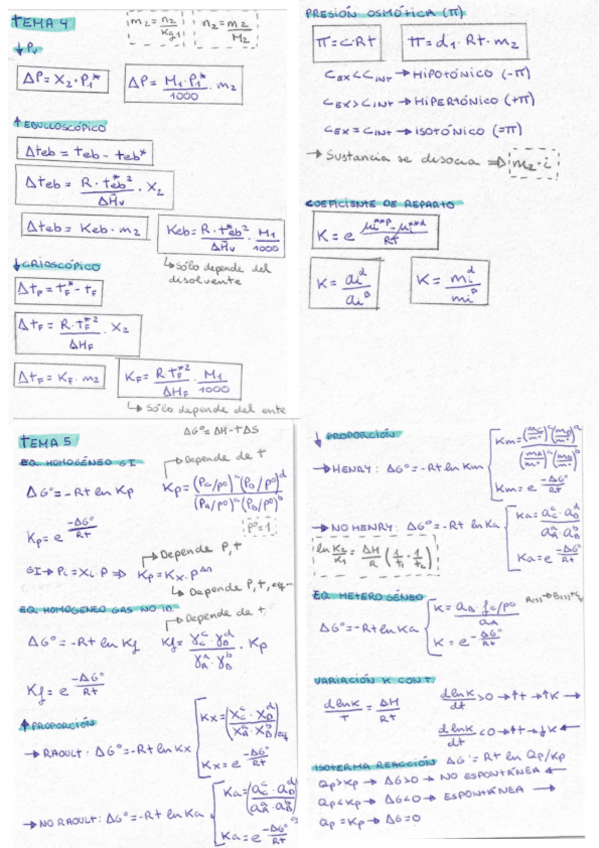 TEMA 4
m₂ = n₂/Kg₁
n₂ = m₂/M₂
↓ Pv
ΔP = X₂ · P₁*
ΔP = M₁ · P₁*/1000 · m₂
↑ EBULLOSCÓPICO
Δteb = teb - teb*
Δteb = R · t*eb²/ΔH̄v · X₂
Δteb = Keb · m₂
Keb = R · t*eb²/ΔH̄v · M₁/1000
↳ Sólo depende del
disolvente
↓ CRIOSCÓPICO
ΔtF = tF* - tF
ΔtF = R · tF*²/ΔHF · X₂
ΔtF = KF · m₂
KF = R · tF*²/ΔHF · M₁/1000
↳ Sólo depende del ente
PRESIÓN OSMÓTICA (π)
π = C·Rt
π = d₁ · Rt · m₂
Cex < Cint → HIPOTÓNICO (-π)
Cex > Cint → HIPERTÓNICO (+π)
Cex = Cint → ISOTÓNICO (=π)
→ Sustancia se disocia ⇒ m₂ · i
COEFICIENTE DE REPARTO
K = aᵢᵅ/aᵢᵝ
K = mᵢᵅ/mᵢᵝ
TEMA 5
ΔG° = ΔH - tΔS
EQ. HOMOGÉNEO GI
↱ Depende de t
ΔG° = -Rt ln Kp
Kp = (Pc/p°)ᶜ (PD/p°)ᵈ/(PA/p°)ᵃ (PB/p°)ᵇ
Kp = e^(-ΔG°/Rt)
p° = 1
↱ Depende P, t
GI → Pi = Xi · P ⇒ Kp = Kx · P^Δn
↳ Depende P, t,
EQ. HOMOGENEO GAS NO ID
↱ Depende de t
ΔG° = -Rt ln Kf
Kf = γCᶜ · γDᵈ/γAᵃ · γBᵇ · Kp
Kf = e^(-ΔG°/Rt)
↑ PROPORCIÓN
→ RAOULT: ΔG° = -Rt ln Kx
Kx = (XCᶜ · XDᵈ/XAᵃ · XBᵇ)eq
Kx = e^(-ΔG°/Rt)
→ NO RAOULT: ΔG° = -Rt ln Ka
Ka = (aCᶜ · aDᵈ/aAᵃ · aBᵇ)
Ka = e^(-ΔG°/Rt)
↓ PROPORCIÓN
→ HENRY: ΔG° = -Rt ln Km
Km = (mC/m°)ᶜ (mD/m°)ᵈ/(mA/m°)ᵃ (mB/m°)ᵇ
Km = e^(-ΔG°/Rt)
→ NO HENRY: ΔG° = -Rt ln Ka
Ka = aCᶜ · aDᵈ/aAᵃ · aBᵇ
Ka = e^(-ΔG°/Rt)
ln K₂/K₁ = ΔH/R (1/t₁ - 1/t₂)
EQ. HETEROGÉNEO
ΔG° = -Rt ln Ka
K = aB · fc/p°/aA
K = e^(-ΔG°/Rt)
VARIACIÓN K CON T
dlnK/t = ΔH/Rt
dlnK/dt > 0 → ↑t → ↑K →
dlnK/dt < 0 → ↑t → ↓K ←
ISOTERMA REACCIÓN ΔG' = Rt ln Qp/Kp
Qp > Kp → ΔG > 0 → NO ESPONTÁNEA ←
Qp < Kp → ΔG < 0 → ESPONTÁNEA →
Qp = Kp → ΔG = 0